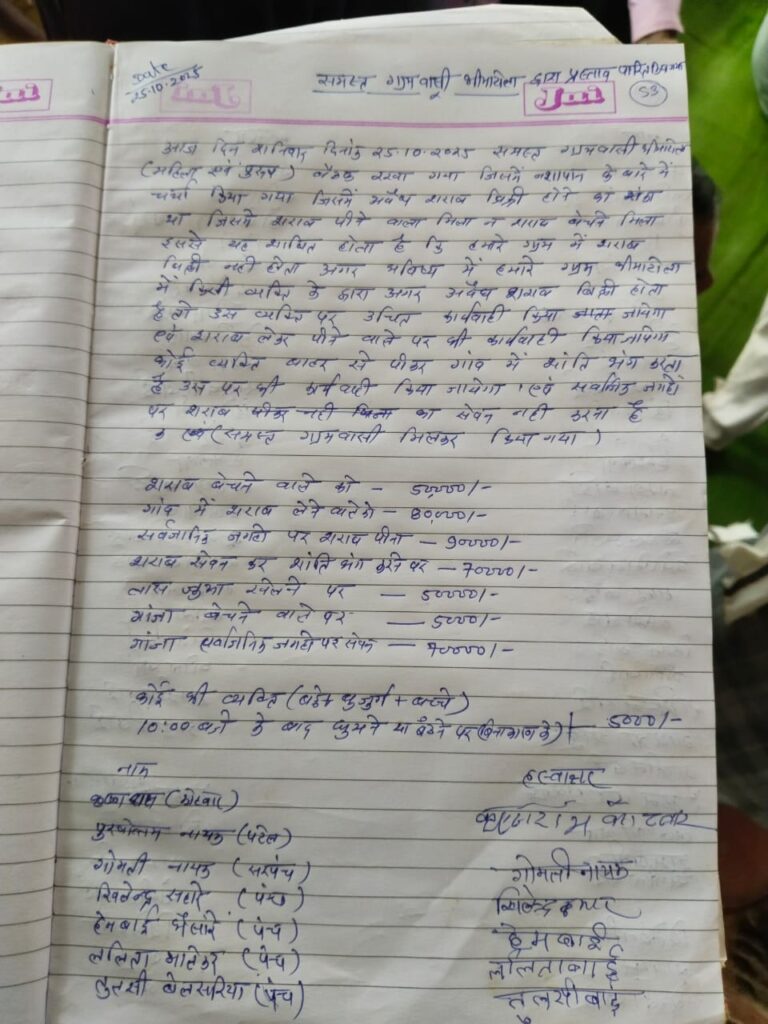 Date
25.10.2025
समस्त ग्रामवासी भीमाटोला द्वारा प्रस्ताव पारित किया गया
53
आज दिन शनिवार दिनांक 25.10.2025 समस्त ग्रामवासी भीमाटोला
(महिला एवं पुरुष) बैठक रखा गया जिसमें नशापान के बारे में
चर्चा किया गया जिसमें अवैध शराब बिक्री होने का शंका
था जिसमें शराब पीने वाला मिला न शराब बेचने मिला
इससे यह साबित होता है कि हमारे ग्राम में शराब
बिक्री नही होता अगर भविष्य में हमारे ग्राम भीमाटोला
में किसी व्यक्ति के द्वारा अगर अवैध शराब बिक्री होता
है तो उस व्यक्ति पर उचित कार्यवाही किया जायेगा
एवं शराब लेकर पीने वाले पर भी कार्यवाही किया जायेगा
कोई व्यक्ति बाहर से पीकर गांव में शांति भंग करता
है उस पर भी कार्यवाही किया जायेगा एवं सर्वजनिक जगहों
पर शराब का सेवन नही करना है
(समस्त ग्रामवासी मिलकर किया गया)
शराब बेचने वाले को - 50,000/-
गांव में शराब लेने वाले को -
सर्वजानिक जगहो पर शराब पीना -
शराब सेवन कर शांति भंग करने पर -
तास जुआ खेलने पर - 50000/-
गांजा बेचने वाले पर - 50000/-
गांजा सर्वजिनिक जगहो पर सेवन -
कोई भी व्यक्ति (बड़े+बुजुर्ग+बच्चे)
10:00 बजे के बाद घुमने या बैठने पर (बिना काम के) 5000/-
नाम
हस्ताक्षर
पुरुषोत्तम नायक (पटेल)
गोमती नायक (सरपंच)
गोमती नायक
खिलेन्द्र सहारे (पंच)
हेमबाई (पंच)
हेमबाई
ललिता (पंच)
ललिताबाई
तुलसी बेलसरिया (पंच)
तुलसीबाई